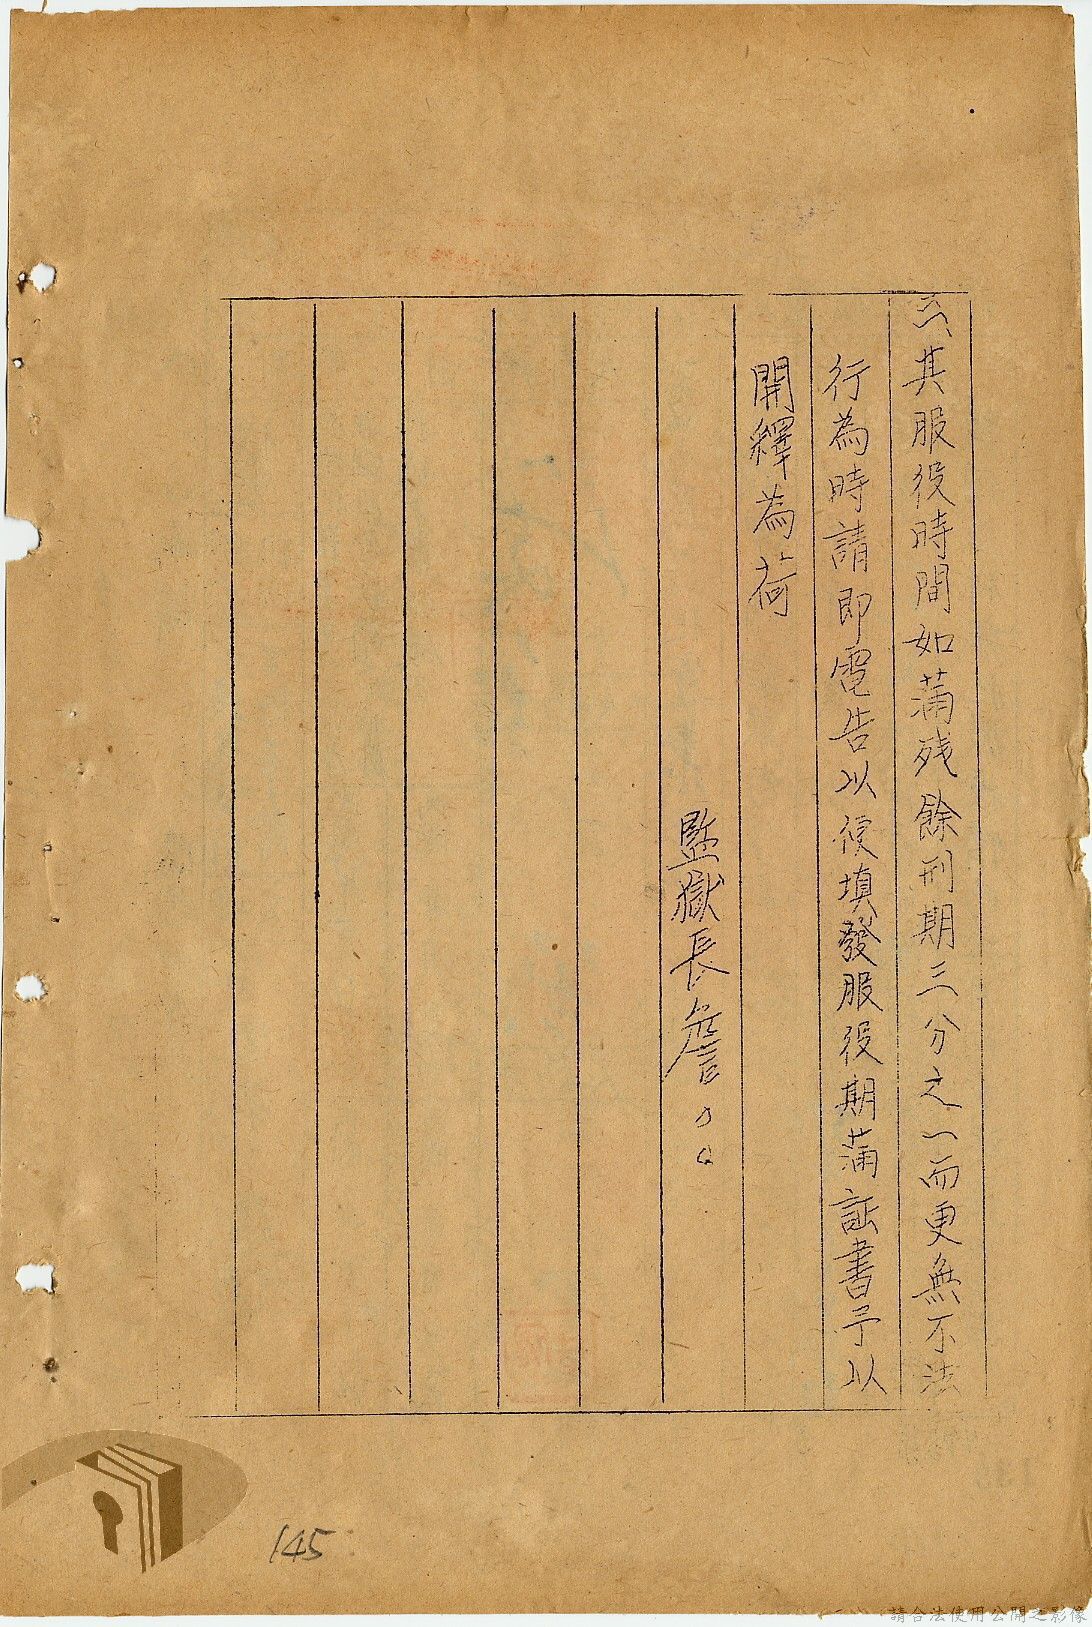 三、其服役時間如滿残餘刑期三分之一而更無不法
行為時請即電告以便填發服役期滿証書予以
開釋為荷
監獄長詹〇〇
145
請合法使用公開之影像